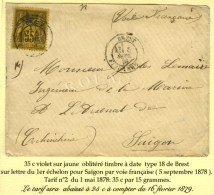 Voie Française
BREST
A Monsieur
Ingénieur de la Marine
A L'Arsenal de
Saigon
(Cochinchine)
35 c violet sur jaune oblitéré timbre à date type 18 de Brest
sur lettre du 1er échelon pour Saigon par voie française ( 5 septembre 1878 ).
Tarif n°2 du 1 mai 1878: 35 c par 15 grammes.
Le tarif sera abaissé à 25 c à compter du 16 février 1879.